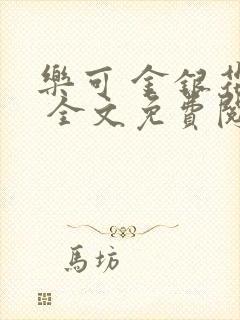 樂可 金銀花
全文免費閱
馬坊